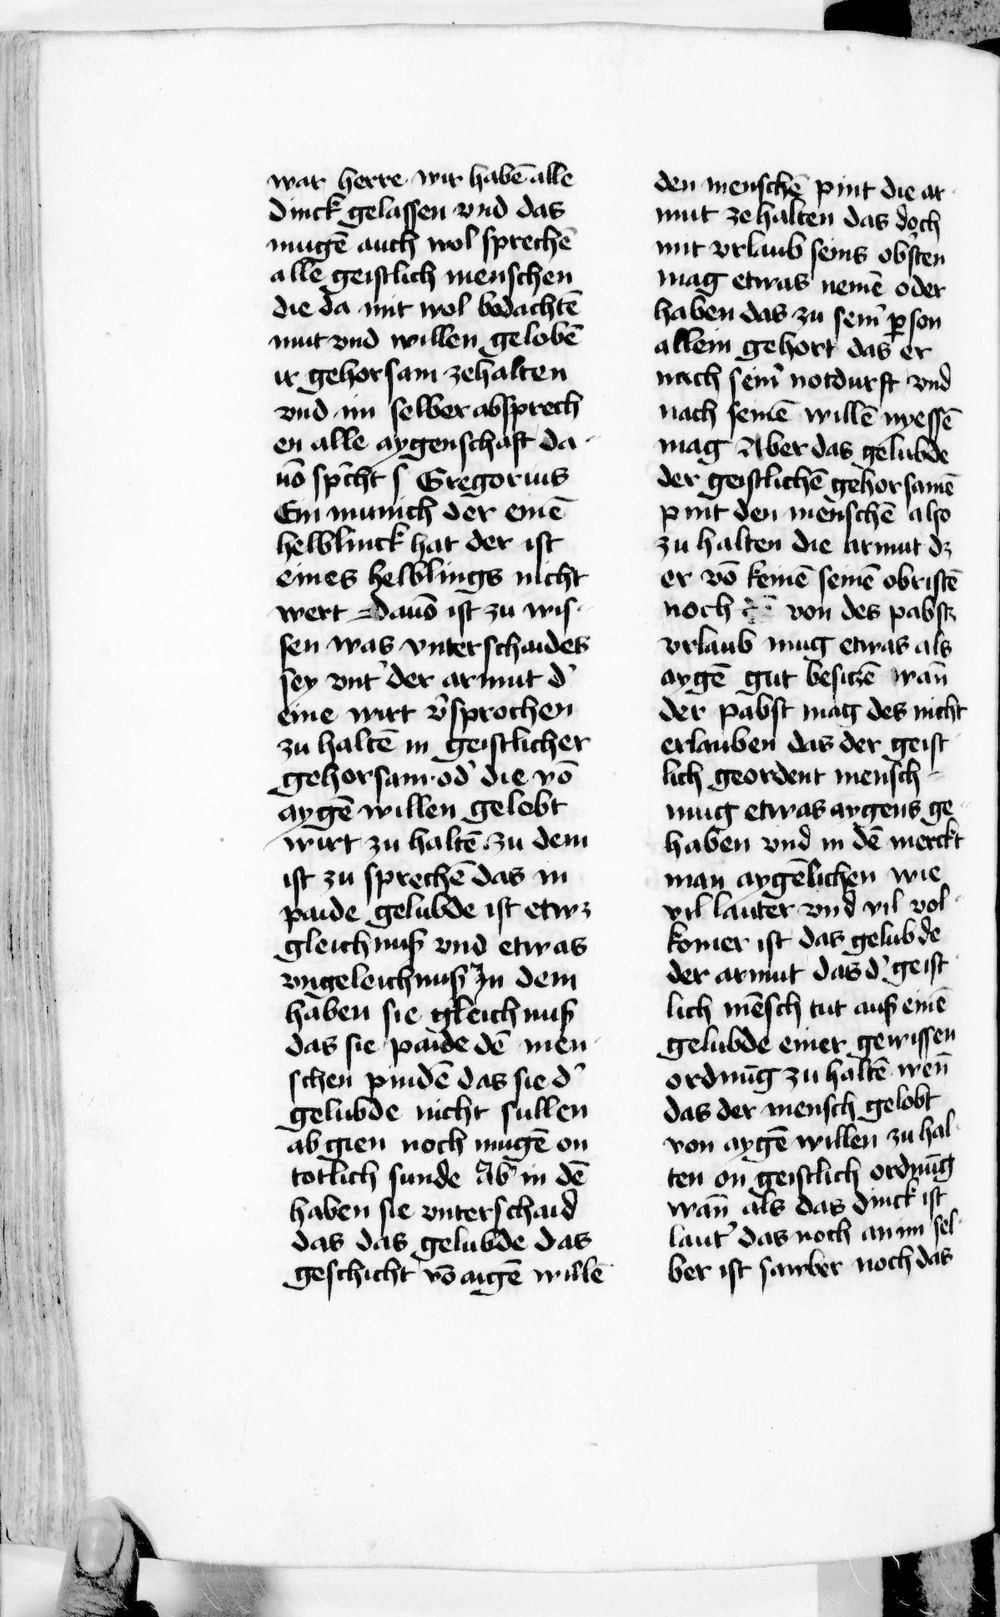 war herre wir habē alle
dinck gelassen vnd das
mugē auch wol sprechē
alle geistlich menschen
die da mit wol bedachtē
mut vnd willen gelobē
ir gehorsam zehalten
vnd im selber absprech
en alle aygenschaft da
uō sp̄cht s Gregorius
Ein munich der einē
helblinck hat der ist
eines helblings nicht
wert dauō ist zu wis
sen was vnterschaides
sey vnt' der armut d'
eine wirt v'sprochen
zu haltē in geistlicher
gehorsam od' die vō
aygē willen gelobt
wirt zu haltē zu dem
ist zu sprechē das in
paide gelubde ist etwz
gleichnuß vnd etwas
vngeleichnuß In dem
haben sie gleichnuß
das sie paide dē men
schen pindē das sie d'
gelubde nicht sullen
ab gien noch mugē on
totlich sunde Ab' in dē
haben sie vnterschaid
das das gelubde das
geschicht vō aigē willē
den menschē pint die ar
mut ze halten das doch
mit vrlaub seins obsten
mag etwas nemē oder
haben das zu seim p̱son
allein gehort das er
nach seim' notdurft vnd
nach seinē willē nyessē
mag Aber das gelubde
der geistlichē gehorsamē
pint den menschē also
zu halten die armut dz
er vō keinē seinē obristē
noch von des pabstz
vrlaub mug etwas als
aygē gut besitzē wan̄
der pabst mag des nicht
erlauben das der geist
lich geordent mensch
mug etwas aygens ge
haben vnd in dē merckt
man aygēlichen wie
vil lauter vnd vil vol
komer ist das gelubde
der armut das d' geist
lich mēsch tut auß einē
gelubde einer gewissen
ordnūg zu haltē wen̄
das der mensch gelobt
von aygē willen zu hal
ten on geistlich ordnūg
wan̄ als das dinck ist
laut' das noch an im sel
ber ist sawber noch das